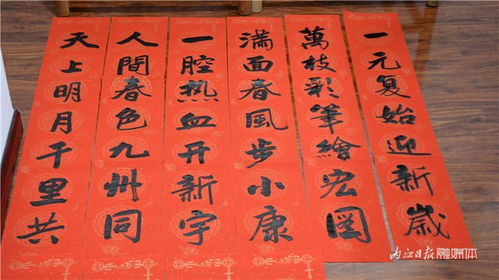 一元复始迎新歲
萬枝彩筆繪宏図
滿面春風步小康
一腔热血开新宇
人間春色九州同
天上明月千里共
内江日报融媒体